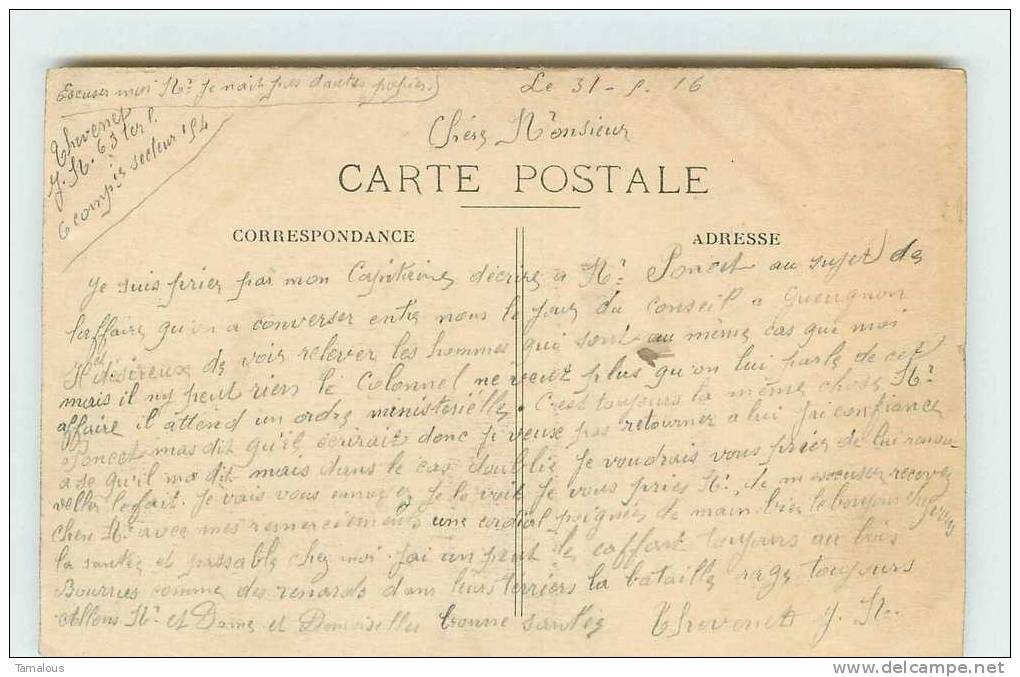 Escuser moi Mr Je nait pas dautre papier)
Le 31 - 5. 16
Thevenet
J. M. 63 ter t.
6 compie secteur 194
Chère Monsieur
CARTE POSTALE
CORRESPONDANCE
ADRESSE
Je suis prier par mon Capitaine décrire a Mr Poncet au sujet de
laffaire qu'on a converser entre nous le jour du Conseil a Gueugnon
Il et désireux de voir relever les hommes qui sont au même cas que moi
mais il ny peut rien le Colonnel ne veut plus qu'on lui parle de cet
affaire il attend un ordre ministerielle. C'est toujours la même chose Mr
Poncet mas dit qu'il écrirait donc je veuse pas retourner a lui jai confiance
a se qu'il ma dit mais dans le cas doublie Je voudrais vous prier de lui renou-
veller lefait. Je vais vous ennuyez je le voit Je vous pries Mr. de mescuser recevez
cher Mr avec mes remerciements une cordial poignée de main bien le bonjour
la santée et passable chez moi. Jai un peut le caffart toujours au bois
Bourrus comme des renards dans leurs terriers la bataille rage toujours
Allons Mr et Dame et Demoiselle bonne santée Thevenet J. M.
Tamalous
www.delcampe.net